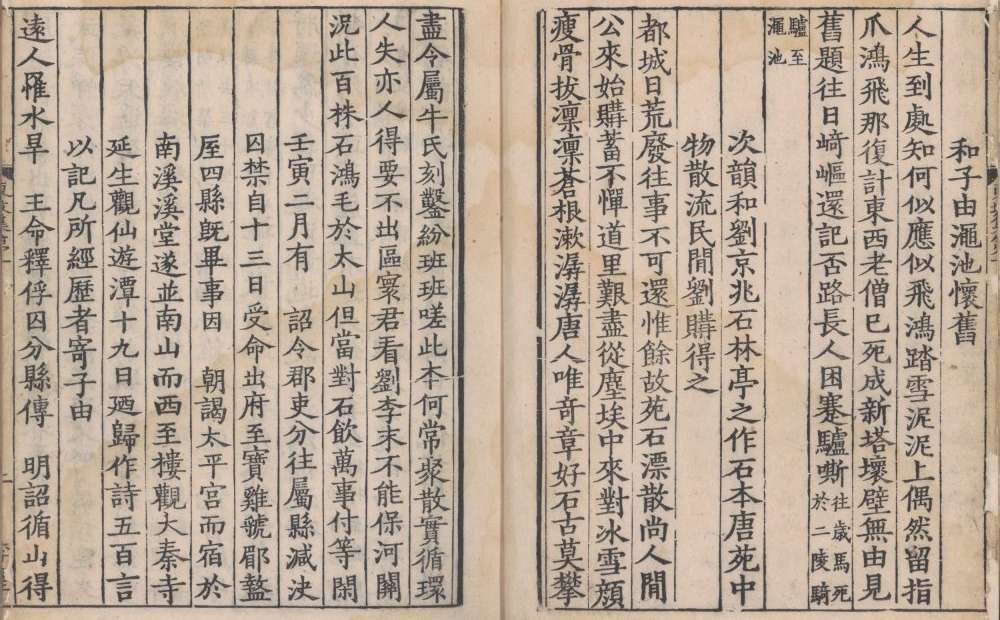 和子由澠池懷舊
人生到處知何似應似飛鴻踏雪泥泥上偶然留指
爪鴻飛那復計東西老僧已死成新塔壞壁無由見
舊題往日崎嶇還記否路長人困蹇驢嘶往歲馬死於二陵騎
驢至澠池
次韻和劉京兆石林亭之作石本唐苑中
物散流民閒劉購得之
都城日荒廢往事不可還惟餘故苑石漂散尚人閒
公來始購蓄不憚道里艱盡從塵埃中來對冰雪顏
瘦骨拔凛凛蒼根漱潺潺唐人唯竒章好石古莫攀
盡令屬牛氏刻鑿紛班班嗟此本何常聚散實循環
人失亦人得要不出區寰君看劉李末不能保河關
況此百株石鴻毛於太山但當對石飲萬事付等閑
壬寅二月有 詔令郡吏分往屬縣減決
囚禁自十三日受命出府至寶雞虢郿盩
厔四縣旣畢事因 朝謁太平宫而宿於
南溪溪堂遂並南山而西至樓觀大秦寺
延生觀仙遊潭十九日廼歸作詩五百言
以記凡所經歷者寄子由
逺人罹水旱 王命釋俘囚分縣傳 明詔循山得